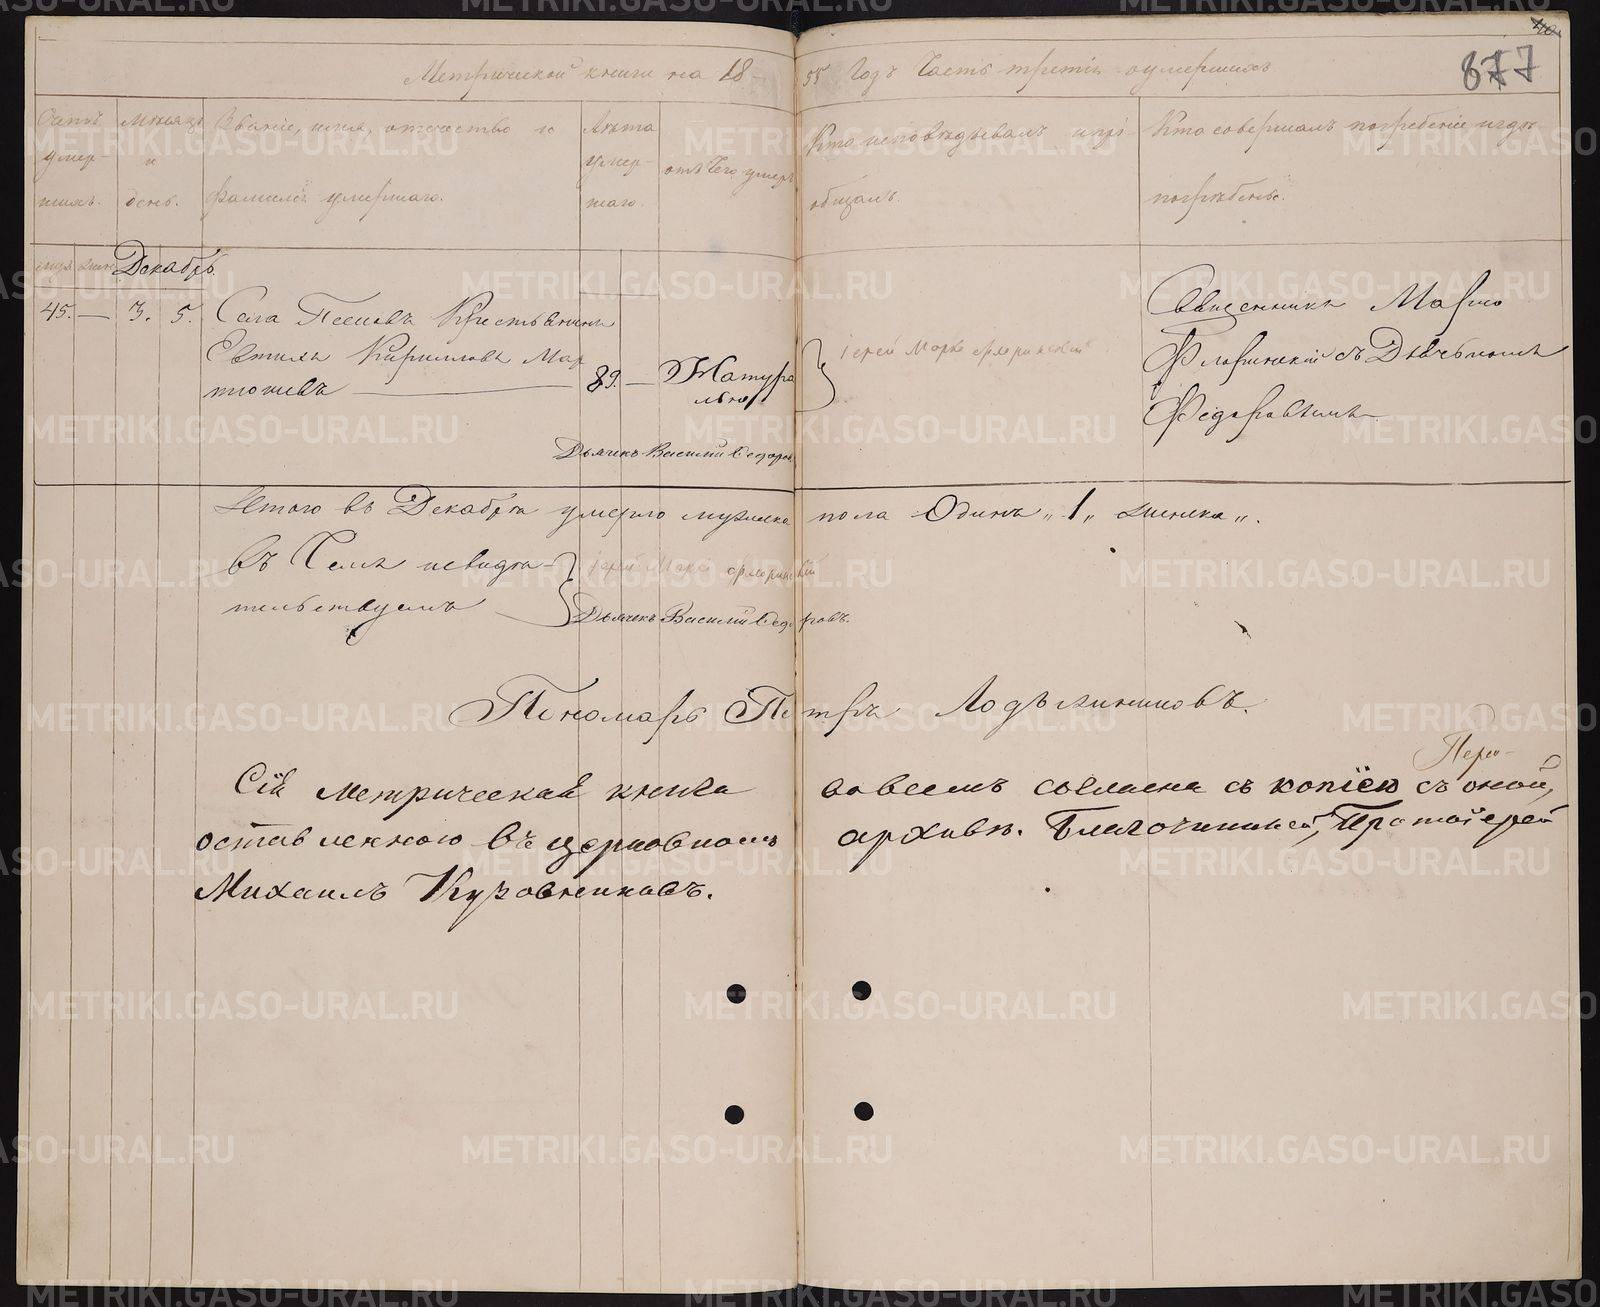 40.
877
Метрической книги на 1855 Годъ Часть третія оумершихъ
Счетъ умер- шихъ. Мѣсяцъ и день. Званіе, имя, отчество и фамилія умершаго. Лѣта умер- шаго. отъ Чего умеръ Кто исповѣдывалъ и прі- общалъ. Кто совершалъ погребеніе и гдѣ погребены.
Декабрь.
45. — 3. 5. Села Крестьянинъ
Евтихъ Кирилловъ Мар-
89. Натура-
льно
Іерей Марко Флоринскій
Священникъ Марко
Флоринскій съ Дьячькомъ
Федоровымъ
Дьячекъ Василій Федоровъ
Итого въ Декабрѣ умерло мужска пола Одинъ „1„ женска „.
въ Чемъ исвидѣ-
тельствуемъ
Іерей Марко Флоринскій
Дьячекъ Василій Федоровъ.
Пономарь Петръ Лодыжниковъ.
Сія метрическая книга вовсемъ согласна съ копіею съ оной,
оставленною въ церковномъ архивѣ. Благочинный, Протоіерей
Михаилъ Куровниковъ.
METRIKI.GASO-URAL.RU